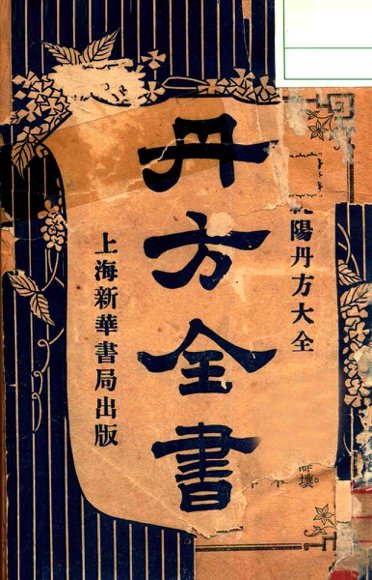 陽丹方大全
丹方全書
上海新華書局出版
壤